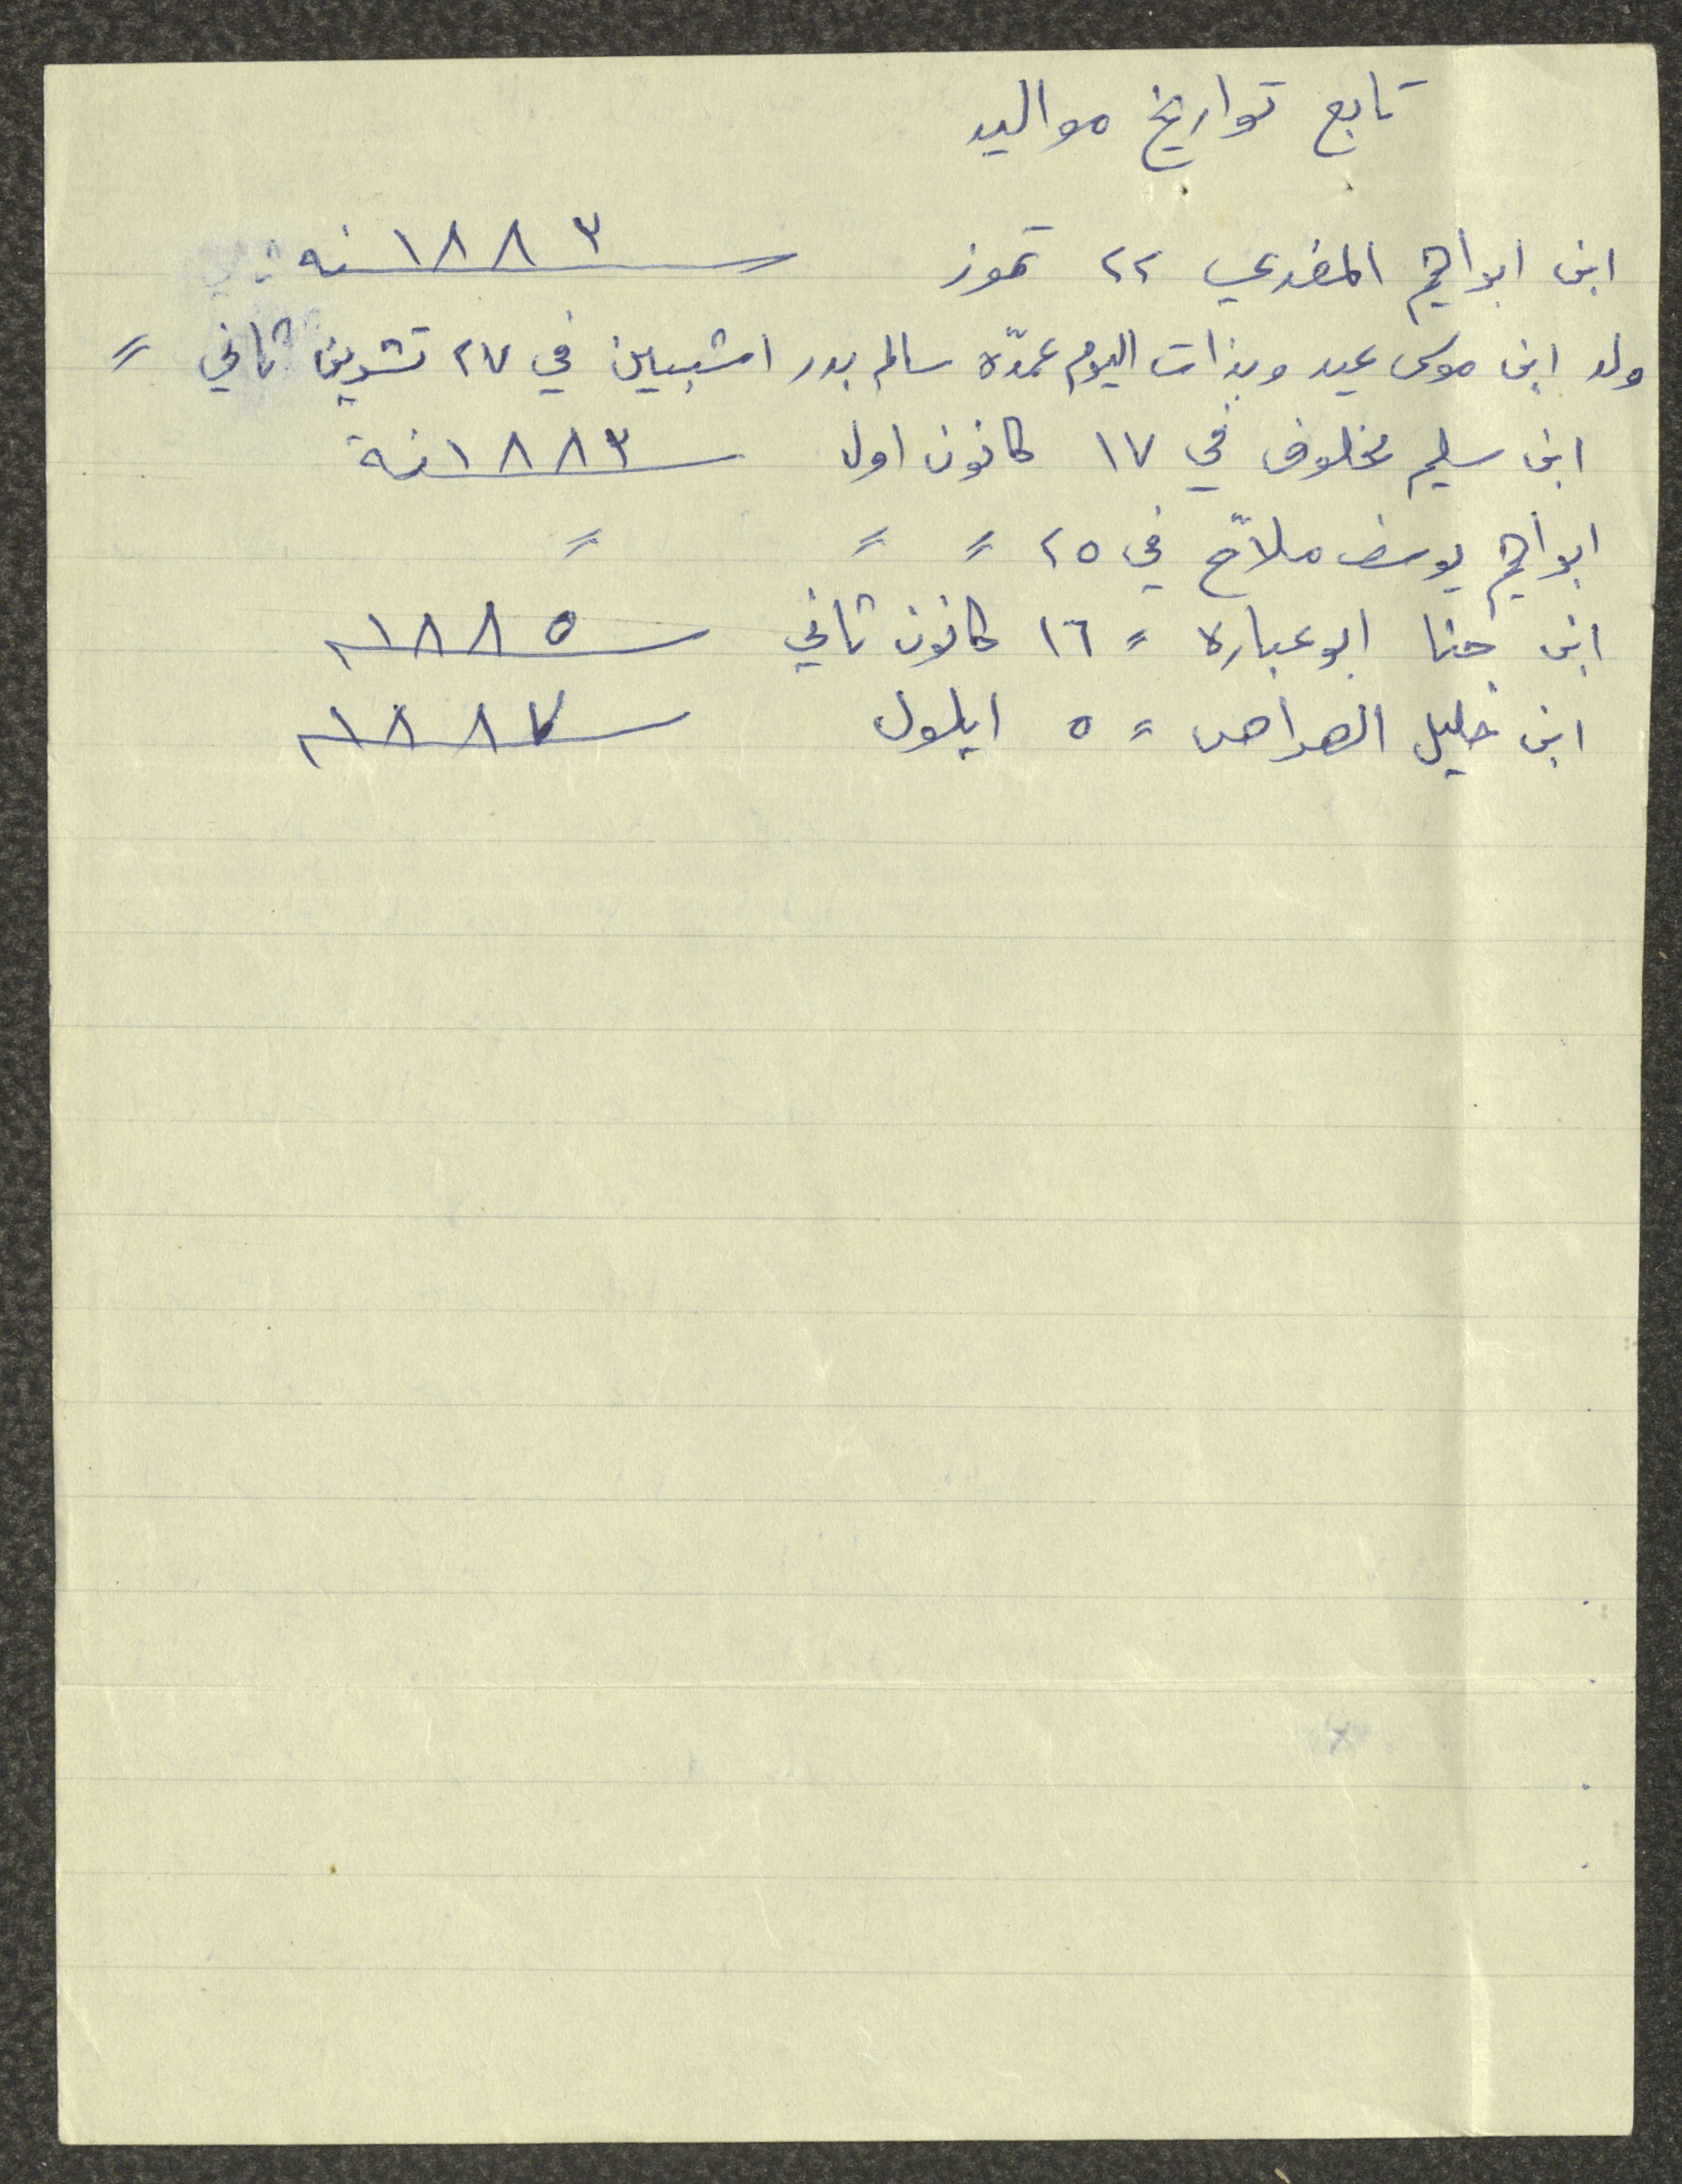 تابع تواريخ مواليد
ابن ابراهيم المغربي ٢٢ تموز سنه ١٨٨٣
ولد ابن موسى عيد وبذات اليوم عمدّه سالم بدر اشبيلين في ٢٧ تشرين ثاني 〃
ابن سليم مخلوف في ١٧ كانون اول سنة ١٨٨٣
ابراهيم يوسف ملاّح في ٢٥ 〃 〃 〃
ابن حنا ابو عباره 〃 ١٦ كانون ثاني سنه ١٨٨٥
ابن خليل الهراهر 〃 ٥ ايلول سنه ١٨٨٧